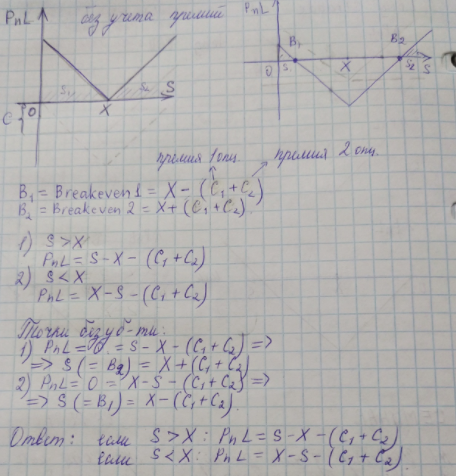 PnL
без учета премий
S₁
S₂
S
C {
O
X
PnL
B₁
B₂
O
S₁
X
S₂
S
премия 1 опц.
премия 2 опц.
B₁ = Breakeven 1 = X − (C₁ + C₂)
B₂ = Breakeven 2 = X + (C₁ + C₂)
1) S > X
PnL = S − X − (C₁ + C₂)
2) S < X
PnL = X − S − (C₁ + C₂)
Точки безуб-ти:
1) PnL = 0 = S − X − (C₁ + C₂) =>
=> S (= B₂) = X + (C₁ + C₂)
2) PnL = 0 = X − S − (C₁ + C₂) =>
=> S (= B₁) = X − (C₁ + C₂).
Ответ: если S > X : PnL = S − X − (C₁ + C₂)
если S < X : PnL = X − S − (C₁ + C₂)